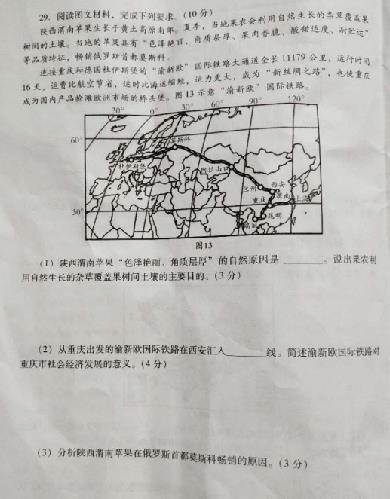 29. 阅读图文材料，完成下列要求。(10分)
陕西渭南苹果生长于黄土高原南部。夏季，当地果农会利用自然生长的杂草覆盖果
树间的土壤。当地的苹果具有"色泽艳丽、角质层厚、果肉香脆、酸甜适度、耐贮运"
等品质特征，畅销俄罗斯首都莫斯科。
连接重庆和德国杜伊斯堡的"渝新欧"国际铁路大通道全长11179公里，运行时间
16天，运费比航空节省，运时比海运缩短，运力更大，成为"新丝绸之路"，也使重庆
成为国内产品抢滩欧洲市场的桥头堡。图13示意"渝新欧"国际铁路。
30° 0° 30° 60° 90° 120°
60°
30°
莫斯科
杜伊斯堡
阿拉山口
兰州
西安
重庆
渭南
上海
昆明
图13
(1) 陕西渭南苹果"色泽艳丽、角质层厚"的自然原因是______。说出果农利
用自然生长的杂草覆盖果树间土壤的主要目的。(3分)
(2) 从重庆出发的渝新欧国际铁路在西安汇入______线。简述渝新欧国际铁路对
重庆市社会经济发展的意义。(4分)
(3) 分析陕西渭南苹果在俄罗斯首都莫斯科畅销的原因。(3分)